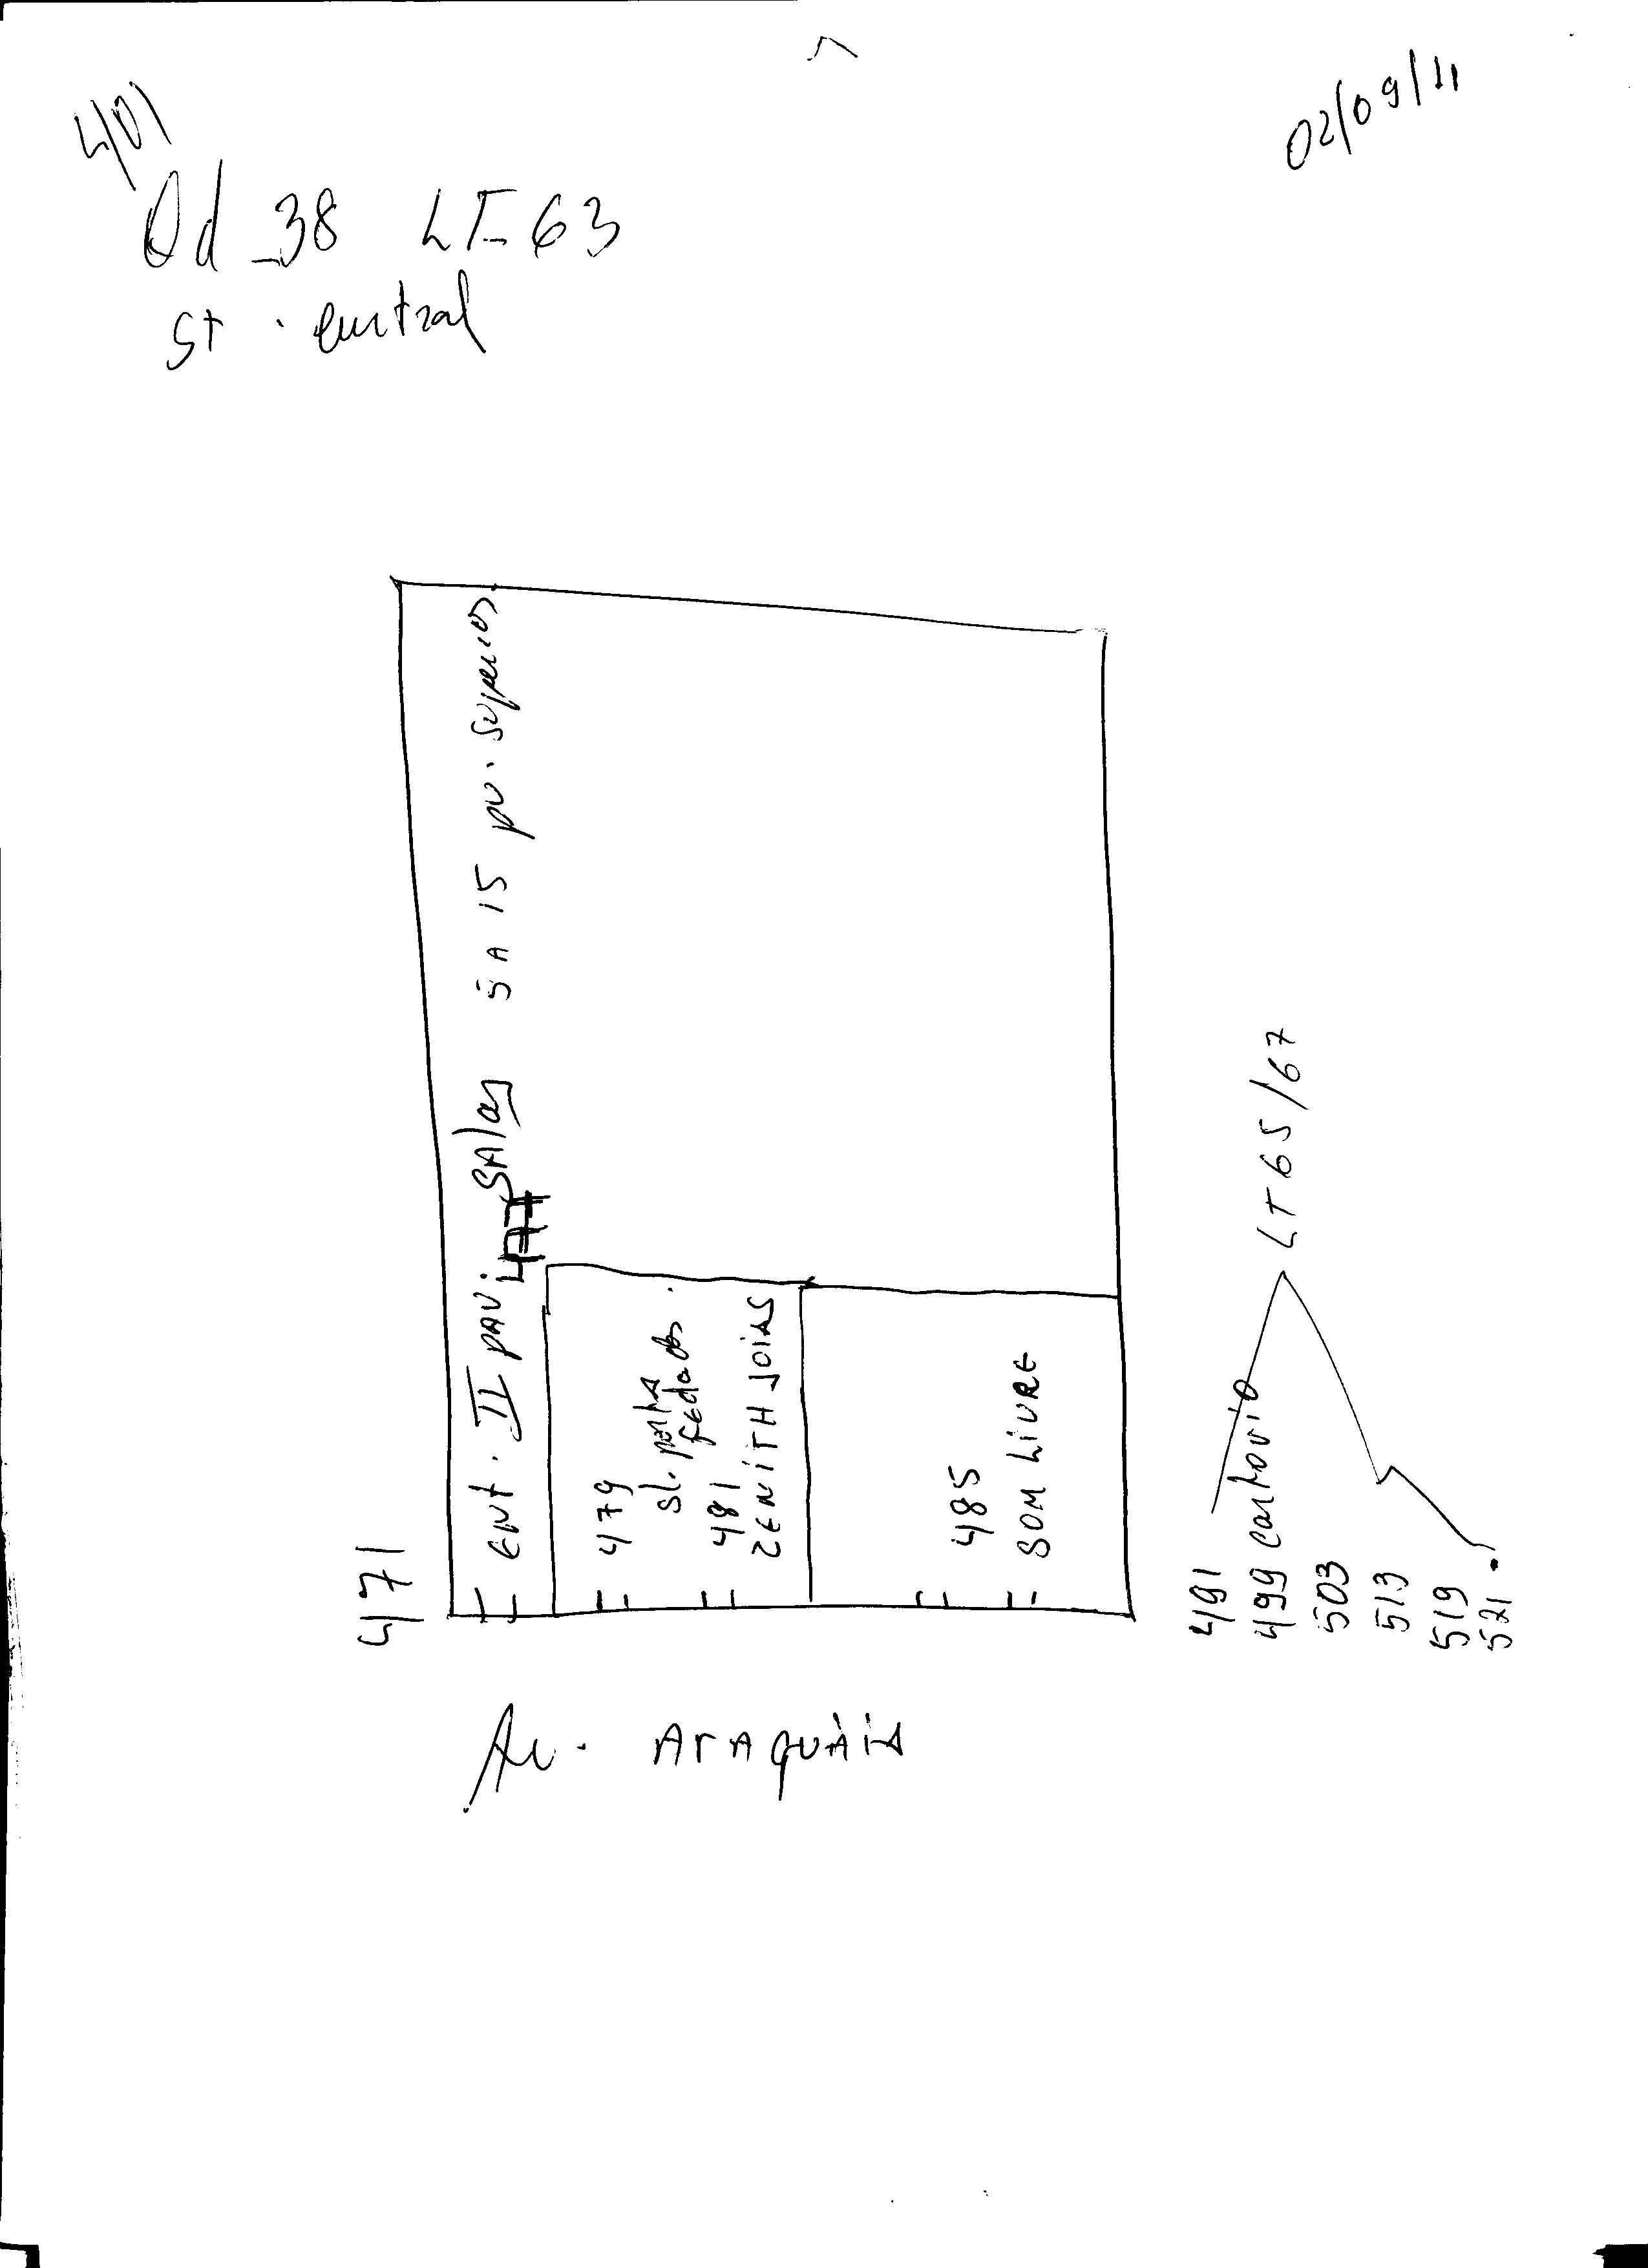 401
02/09/11
Qd_38 LT-63
St. Central
471
Ent. II pav.
477
Salas 5 A 15 pv. superior
479
sl. porta
fechada.
481
ZENITH JOIAS
485
SOM LIVRE
Av. Araguaia
491
499 cartorio
503
513
519
521.
LT 65/67